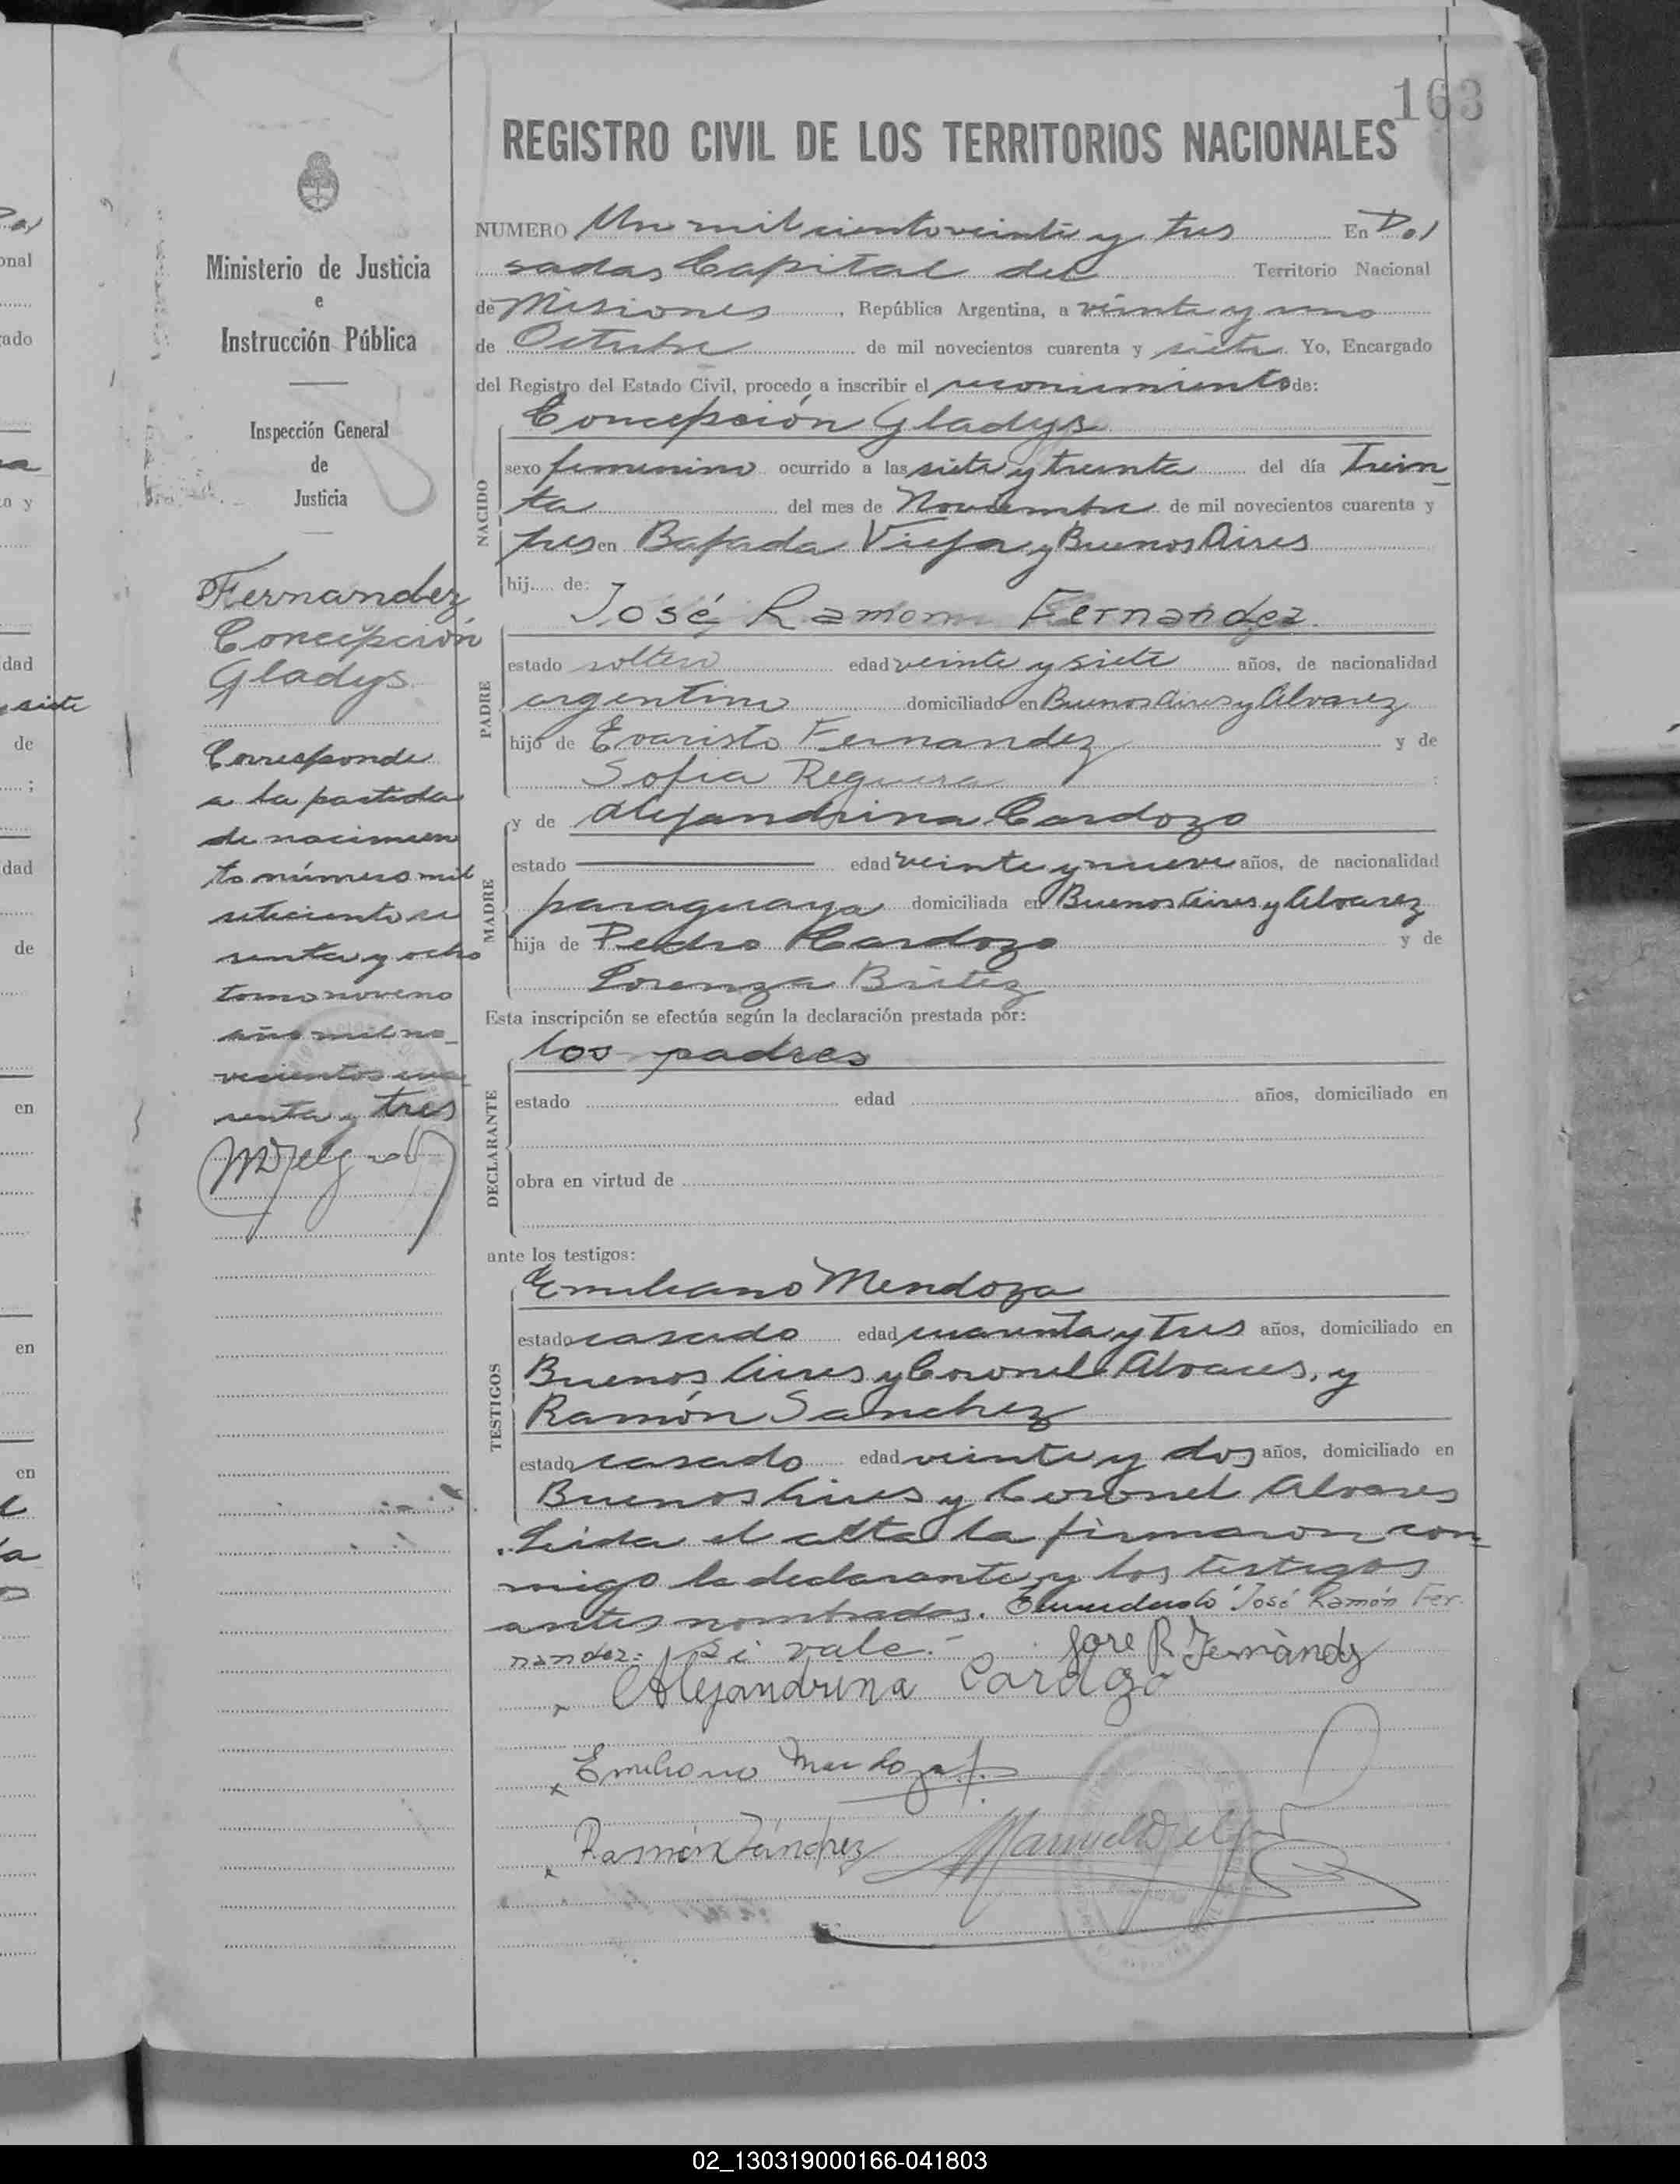 163
REGISTRO CIVIL DE LOS TERRITORIOS NACIONALES
Ministerio de Justicia
e
Instrucción Pública
Inspección General
de
Justicia
Fernandez
Concepción
Gladys
Corresponde
a la partida
de nacimien
to número mil
seteciento se
senta y ocho
tomo noveno
año mil no_
vecientos cua
renta y tres
NUMERO Un mil ciento veinte y tres En Po/
sadas Capital del Territorio Nacional
de Misiones, República Argentina, a veinte y uno
de Octubre de mil novecientos cuarenta y siete Yo, Encargado
del Registro del Estado Civil, procedo a inscribir el reconicimiento de:
NACIDO
Concepción Gladys
sexo femenino ocurrido a las siete y treinta del día Trein_
ta del mes de Noviembre de mil novecientos cuarenta y
tres en Bajada Vieja y Buenos Aires
hij.... de:
PADRE
José Ramon Fernandez.
estado soltero edad veinte y siete años, de nacionalidad
argentino domiciliado en Buenos Aires y Alvarez
hijo de Evaristo Fernandez y de
Sofia Reguera
MADRE
y de Alejandrina Cardozo
estado edad veinte y nueve años, de nacionalidad
paraguaya domiciliada en Buenos Aires y Alvarez
hija de Pedro Cardozo y de
Lorenza Britez
Esta inscripción se efectúa según la declaración prestada por:
DECLARANTE
los padres
estado edad años, domiciliado en
obra en virtud de
ante los testigos:
TESTIGOS
Emiliano Mendoza
estado casado edad cuarenta y tres años, domiciliado en
Buenos Aires y Coronel Alvares, y
Ramón Sanchez
estado casado edad veinte y dos años, domiciliado en
Buenos Aires y Coronel Alvares
. Leida el acta la firmaron con_
migo la declarante y los testigos
antes nombrados. Enmendado "José Ramón Fer
nandez: Si vale.-
Jose R Fernàndz
x Alejandrina Cardozo
x Emiliano Mendoza
x Ramón Sánchez
Manuel Delgado
02_130319000166-041803